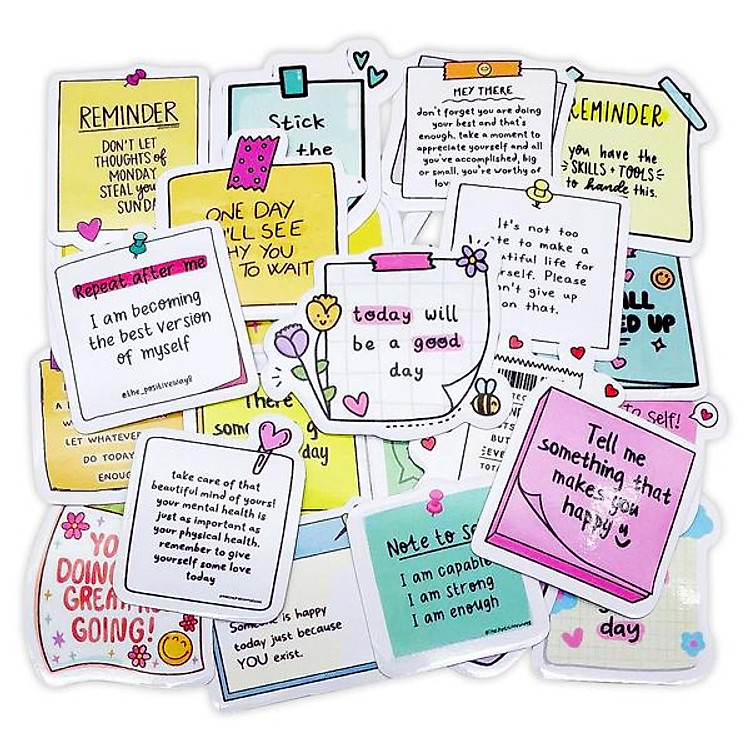 REMINDER
DON'T LET
THOUGHTS of
MONDAY
STEAL
Stick
the
HEY THERE
don't forget you are doing
your best and that's
enough. take a moment to
appreciate yourself and all
you've accomplished, big
or small. you're worthy of
REMINDER
you have the
SKILLS + TOOLS
to handle this.
ONE DAY
SEE
YOU
TO WAIT
It's not too
to make a
life for
Please
give up
on that.
Repeat after me
I am becoming
the best version
of myself
@the_positiveway8
today will
be a good
day
UP
LET WHATEVER
DO TODAY
There
day
BUT
to self!
Tell me
something that
makes you
happy
take care of that
beautiful mind of yours!
your mental health is
just as important as
your physical health.
remember to give
yourself some love
today
DOING
GOING!
is happy
today just because
YOU exist.
Note to
I am capable
I am strong
I am enough
day